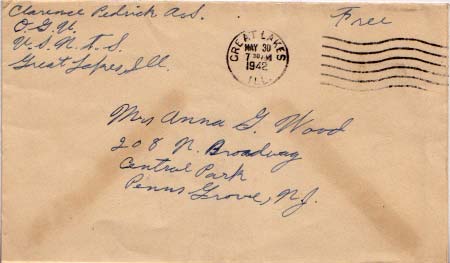 Clarence Pedrick A.S.
O.G.U.
U.S.N.T.S.
Great Lakes, Ill.
Free
GREAT LAKES
MAY 30
7 30 AM
1942
ILL.
Mrs Anna G. Wood
208 N. Broadway
Central Park
Penns Grove, N.J.